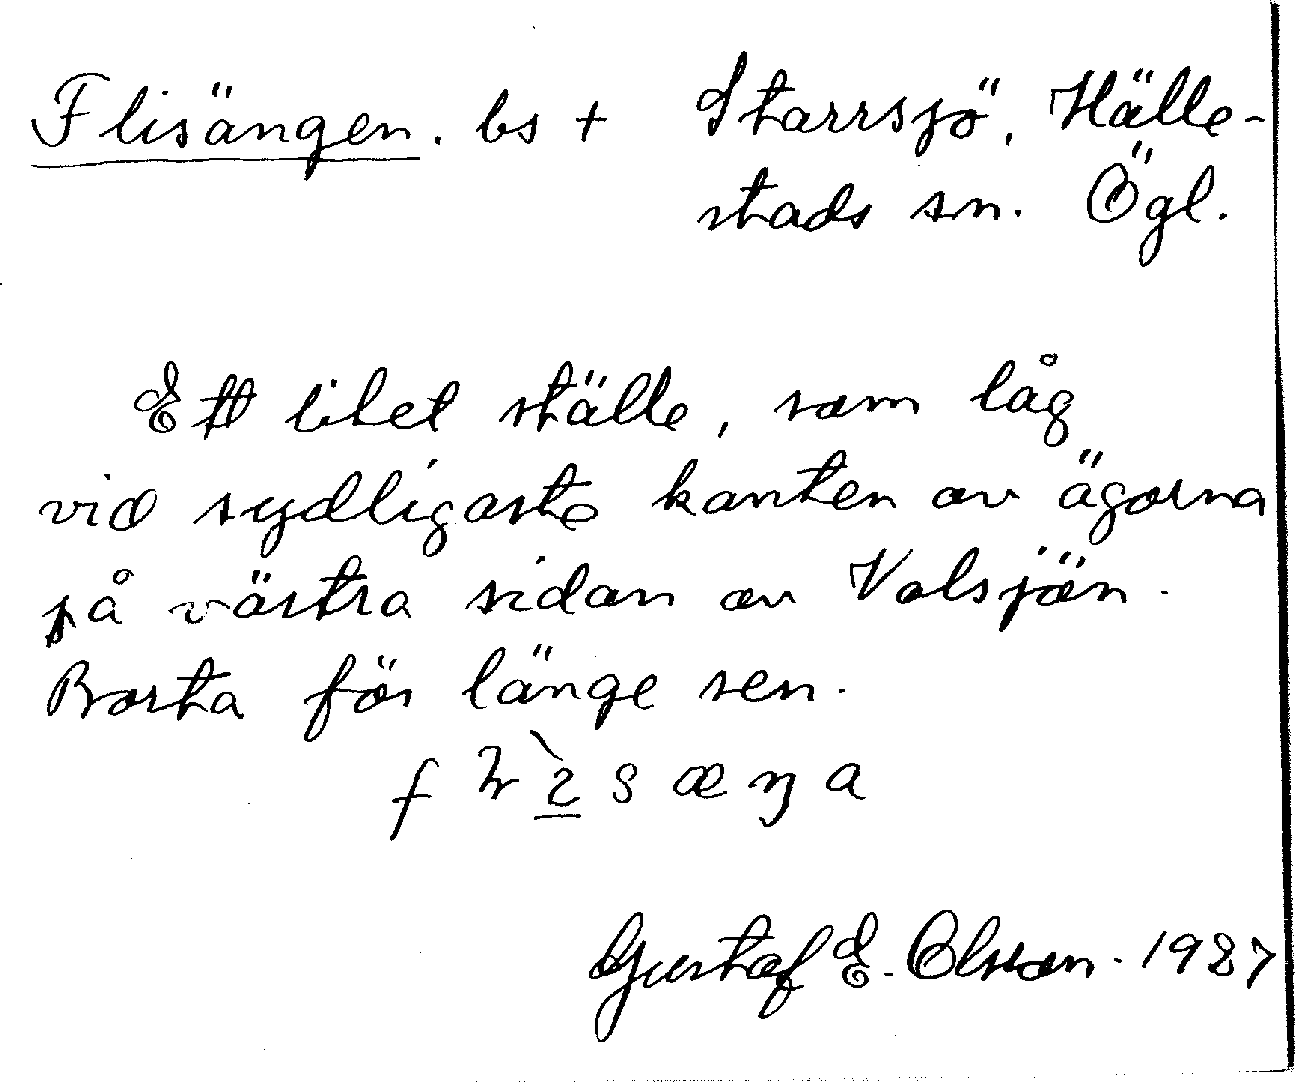 Flisängen. bs + Starrsjö, Hälle-
stads sn. Ögl.
Ett litet ställe, som låg
vid sydligaste kanten av ägorna
på västra sidan av Valsjön.
Borta för länge sen.
Gustaf E. Olsson. 1927